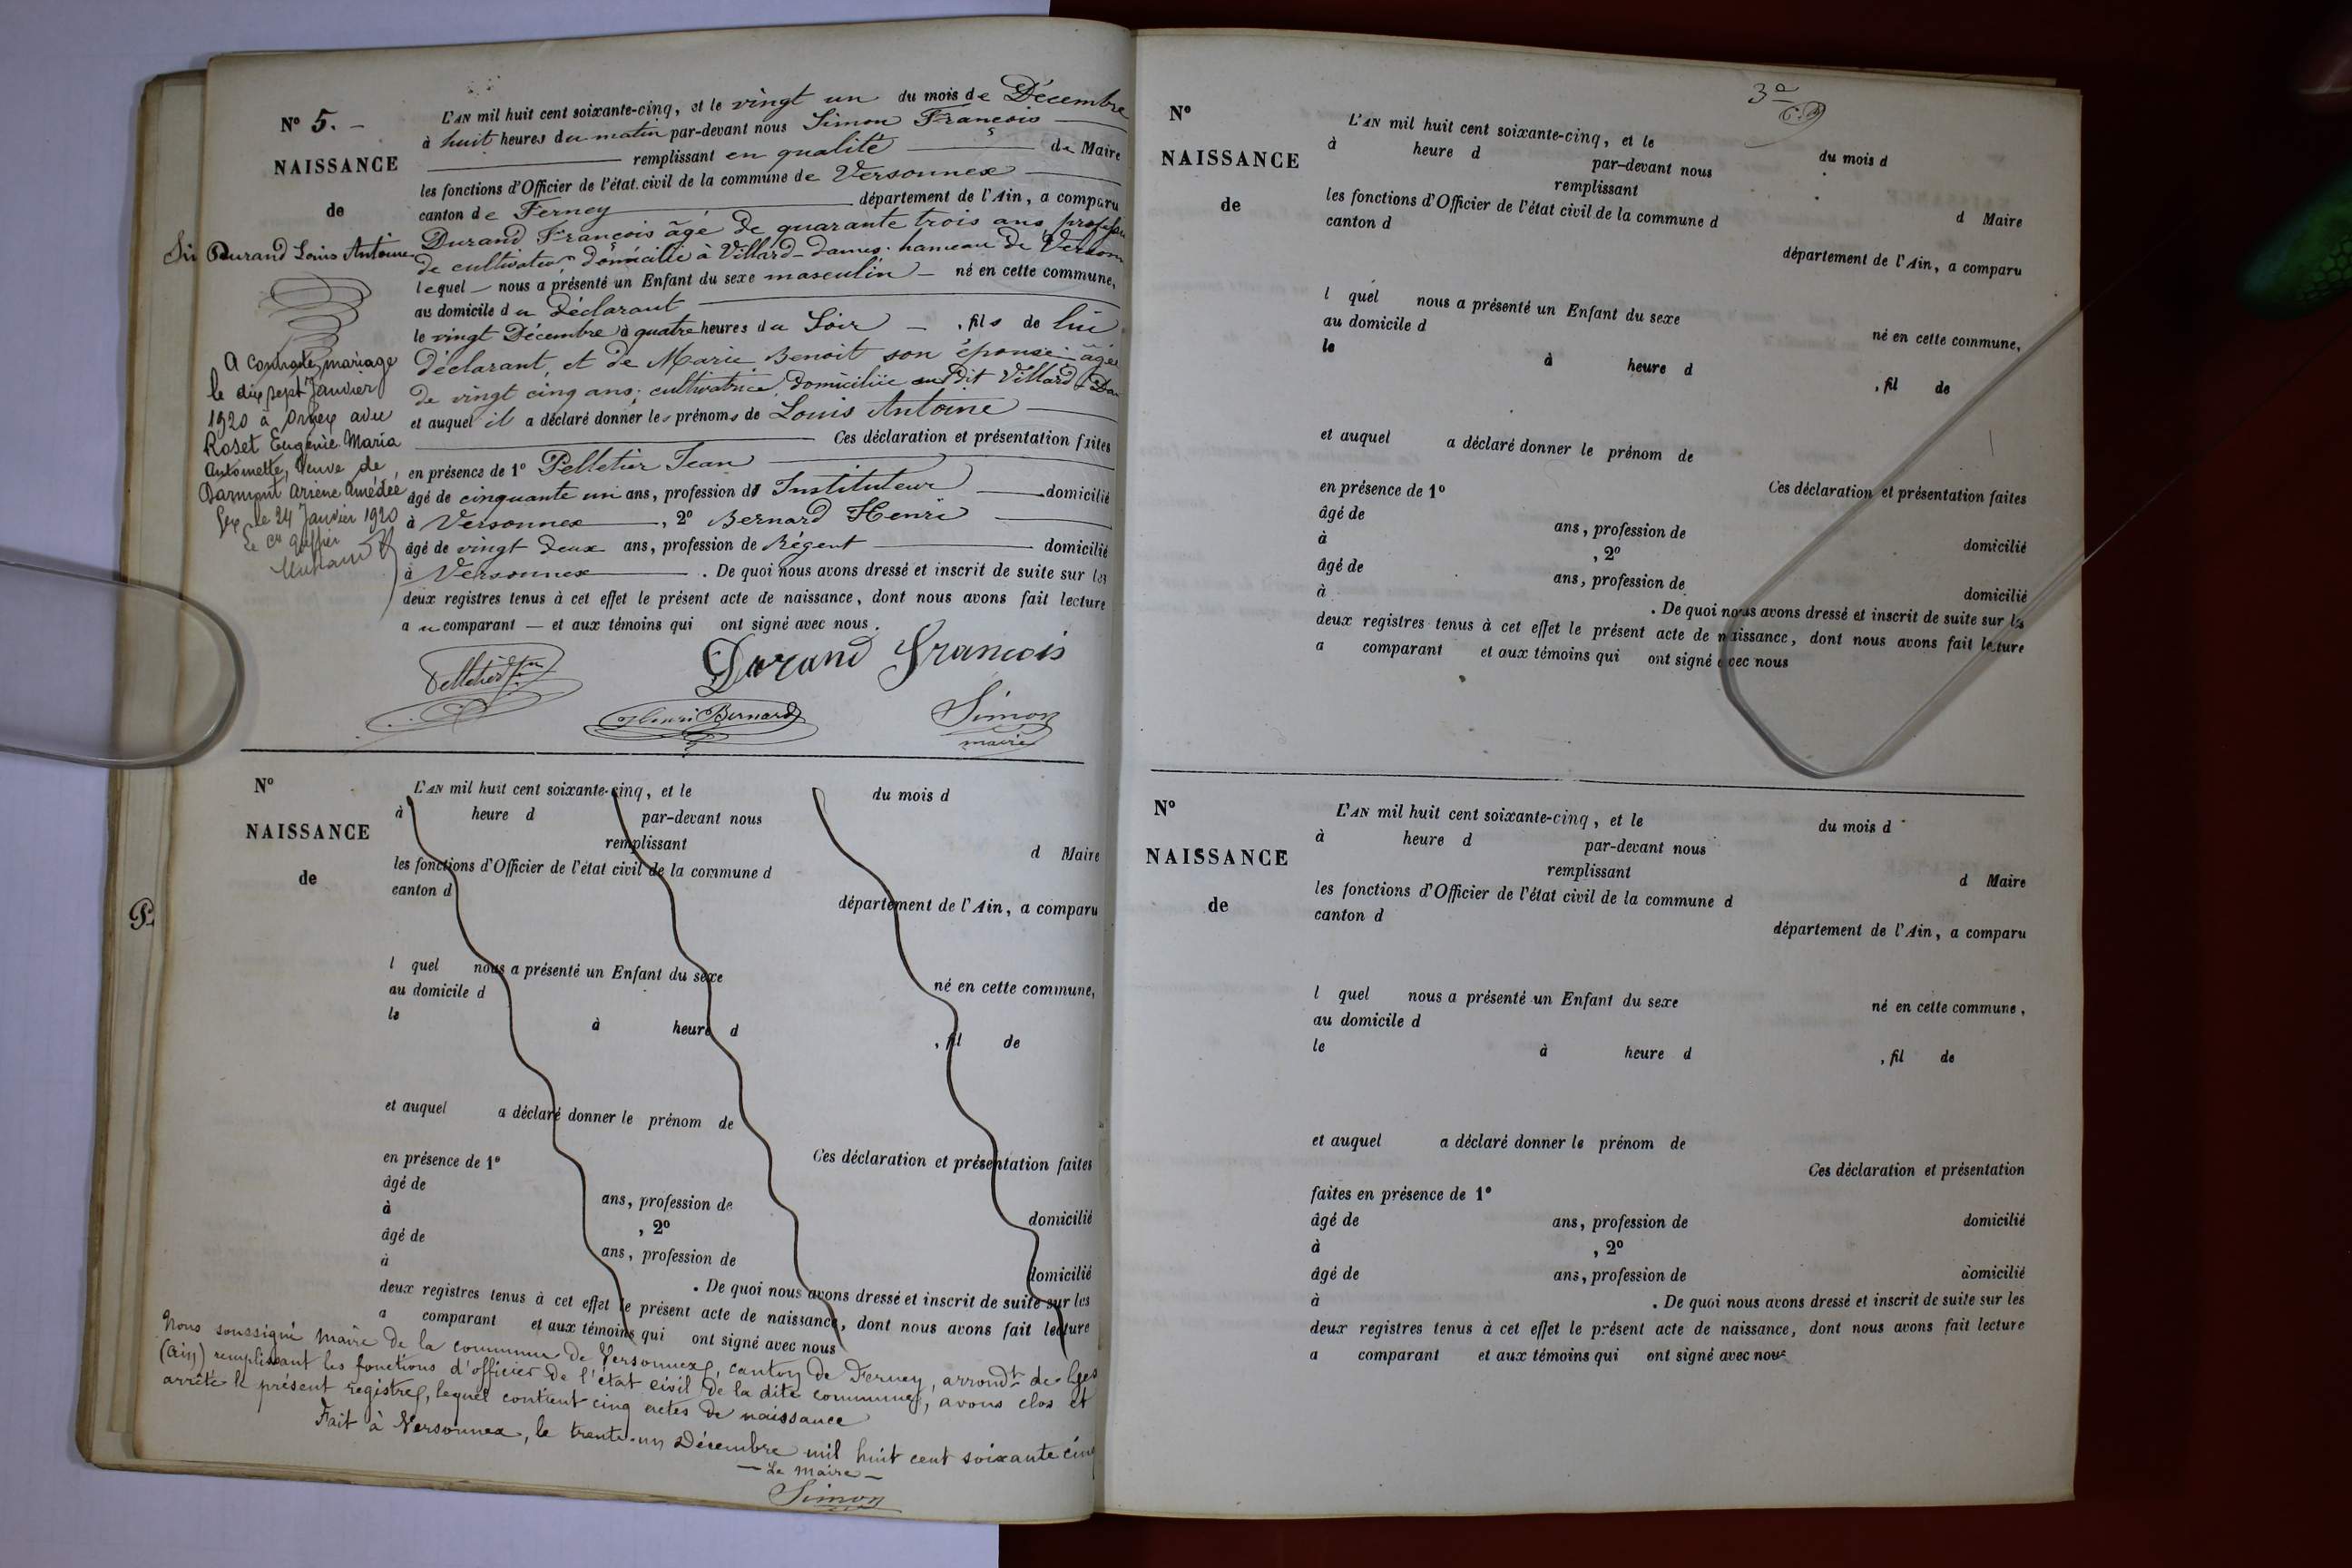 N° 5. —
NAISSANCE
de
Durand Louis Antoine
A contracté mariage
le dix sept Janvier
1920 à Ornex avec
Roset Eugénie Maria
Antoinette, Veuve de
Darmont Arsène Amédée
Gex le 24 Janvier 1920
Le Cis Greffier
L'AN mil huit cent soixante-cinq, et le vingt un du mois de Décembre
à huit heures du matin par-devant nous Simon François
remplissant en qualité de Maire
les fonctions d'Officier de l'état civil de la commune de Versonnex
canton de Ferney département de l'Ain, a comparu
Durand François âgé de quarante trois ans, profession
de cultivateur domicilié à Villard-Dames hameau de Verson
lequel nous a présenté un Enfant du sexe masculin — né en cette commune,
au domicile du Déclarant
le vingt Décembre à quatre heures du Soir — , fils de lui
déclarant, et de Marie Benoit son épouse âgée
de vingt cinq ans, cultivatrice domiciliée au dit Villard-Da
et auquel il a déclaré donner les prénoms de Louis Antoine
Ces déclaration et présentation faites
en présence de 1° Pelletier Jean
âgé de cinquante un ans, profession d' Instituteur domicilié
à Versonnex , 2° Bernard Henri
âgé de vingt deux ans, profession de Régent domicilié
à Versonnex . De quoi nous avons dressé et inscrit de suite sur les
deux registres tenus à cet effet le présent acte de naissance, dont nous avons fait lecture
au comparant — et aux témoins qui ont signé avec nous.
Pelletier Jn
Durand François
Henri Bernard
Simon
maire
N°
NAISSANCE
de
L'AN mil huit cent soixante-cinq, et le du mois d
à heure d par-devant nous
remplissant d Maire
les fonctions d'Officier de l'état civil de la commune d
canton d département de l'Ain, a comparu
l quel nous a présenté un Enfant du sexe né en cette commune,
au domicile d
le à heure d , fil de
et auquel a déclaré donner le prénom de
Ces déclaration et présentation faites
en présence de 1°
âgé de ans, profession de domicilié
à , 2°
âgé de ans, profession de domicilié
à . De quoi nous avons dressé et inscrit de suite sur les
deux registres tenus à cet effet le présent acte de naissance, dont nous avons fait lecture
a comparant et aux témoins qui ont signé avec nous
Nous soussigné Maire de la commune de Versonnex, canton de Ferney, arrondt de Gex
(Ain) remplissant les fonctions d'officier de l'état civil de la dite commune, avons clos et
arrêté le présent registre, lequel contient cinq actes de naissance
Fait à Versonnex, le trente-un Décembre mil huit cent soixante cinq
— Le Maire —
Simon
3e
N°
NAISSANCE
de
L'AN mil huit cent soixante-cinq, et le du mois d
à heure d par-devant nous
remplissant d Maire
les fonctions d'Officier de l'état civil de la commune d
canton d département de l'Ain, a comparu
l quel nous a présenté un Enfant du sexe né en cette commune,
au domicile d
le à heure d , fil de
et auquel a déclaré donner le prénom de
Ces déclaration et présentation faites
en présence de 1°
âgé de ans, profession de domicilié
à , 2°
âgé de ans, profession de domicilié
à . De quoi nous avons dressé et inscrit de suite sur les
deux registres tenus à cet effet le présent acte de naissance, dont nous avons fait lecture
a comparant et aux témoins qui ont signé avec nous
N°
NAISSANCE
de
L'AN mil huit cent soixante-cinq, et le du mois d
à heure d par-devant nous
remplissant d Maire
les fonctions d'Officier de l'état civil de la commune d
canton d département de l'Ain, a comparu
l quel nous a présenté un Enfant du sexe né en cette commune,
au domicile d
le à heure d , fil de
et auquel a déclaré donner le prénom de
Ces déclaration et présentation
faites en présence de 1°
âgé de ans, profession de domicilié
à , 2°
âgé de ans, profession de domicilié
à . De quoi nous avons dressé et inscrit de suite sur les
deux registres tenus à cet effet le présent acte de naissance, dont nous avons fait lecture
a comparant et aux témoins qui ont signé avec nous